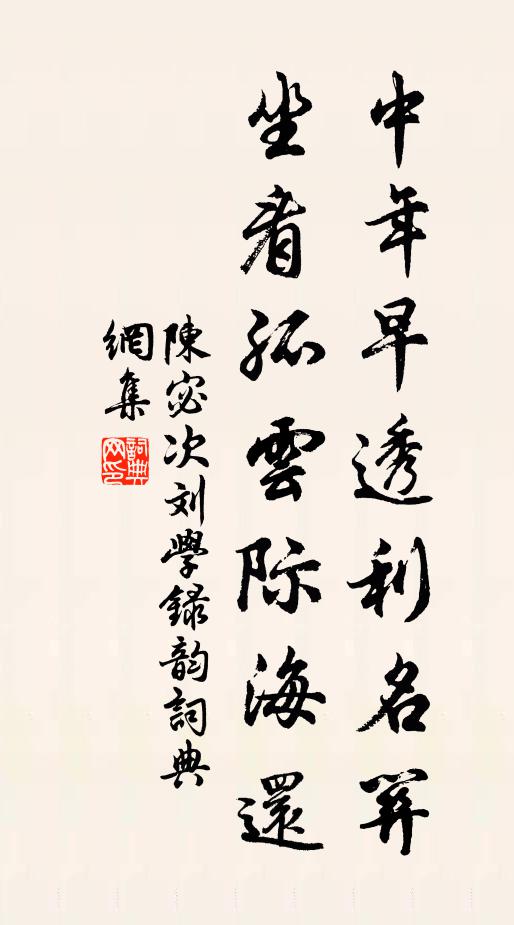 中年早透利名关
坐看孤雲际海還
陳宓次刘學録韵詞典
網集
詞典网印